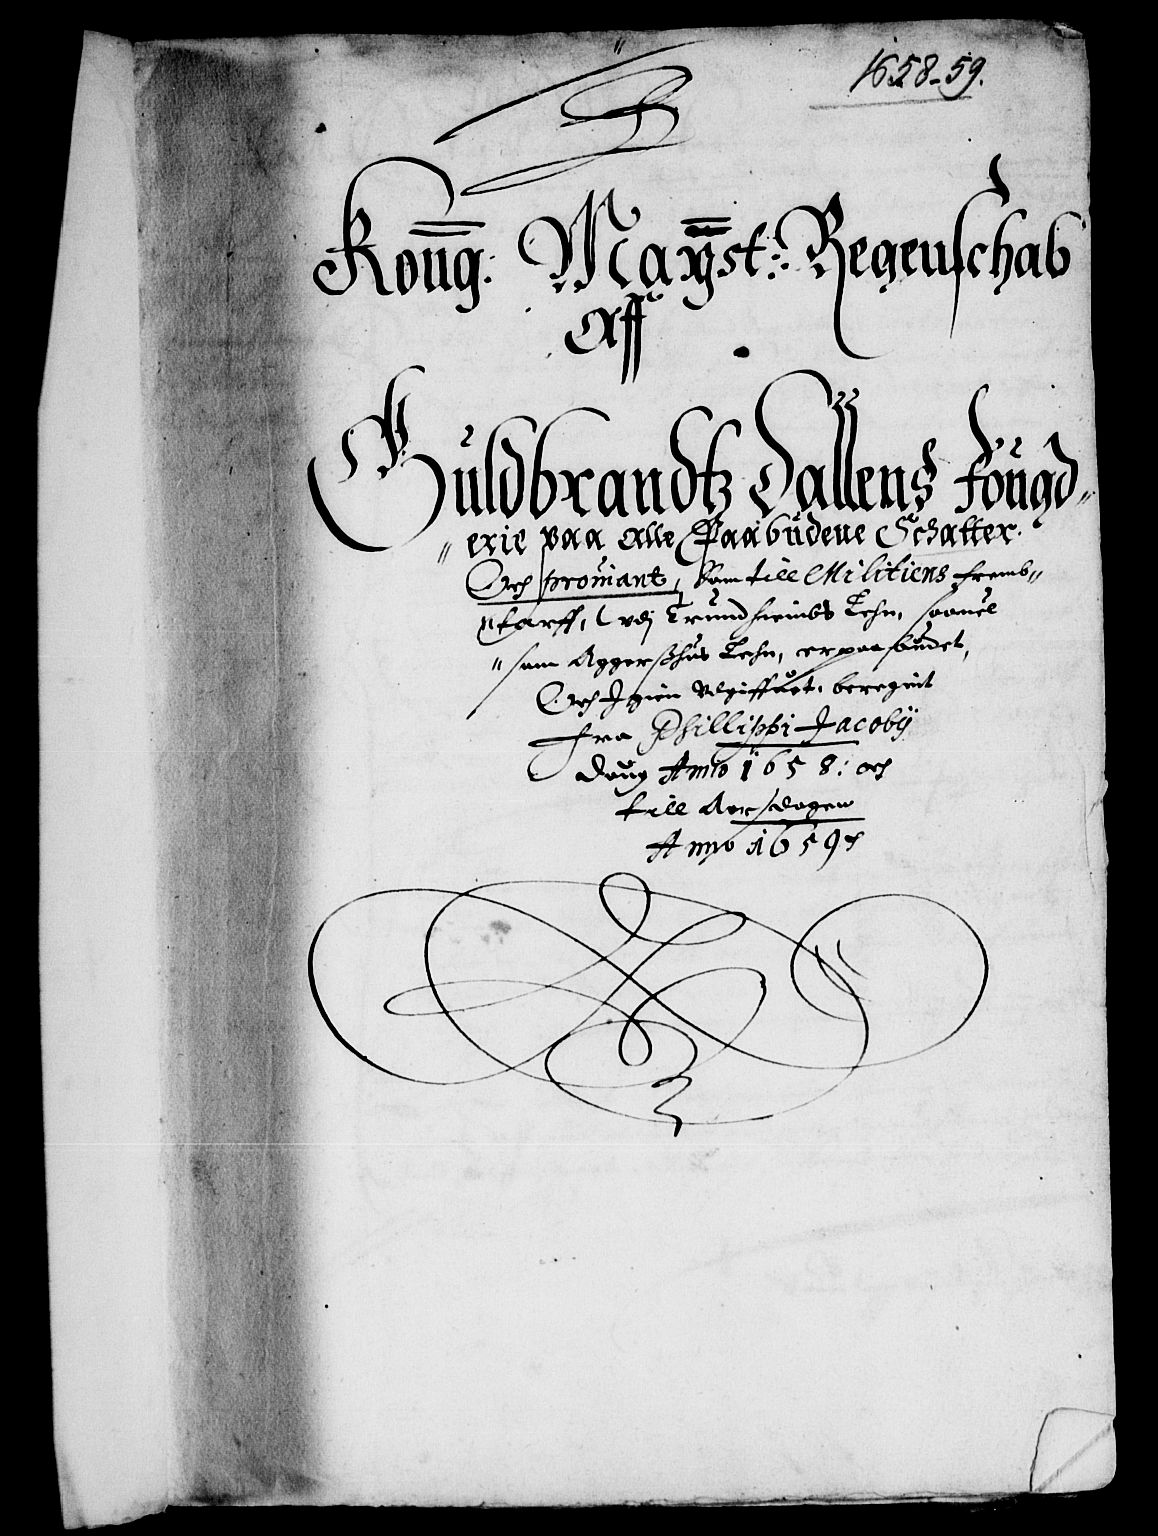 1658-59.
Kong: Mayst: Regenschab
Aff
Guldbrandtz Dallens fougd„
„erie paa alle Paabudene Schatter.
Och proviant, som till Militiens fremb„
„tarff, udj Trundhiembs Lehn, saauel
„som Aggershus Lehn, er paabudet,
Och Igien Udgiffuet, beregnit
fra Phillippi Jacobij
Daug Anno 1658: och
till Aarsdagen
Anno 1659